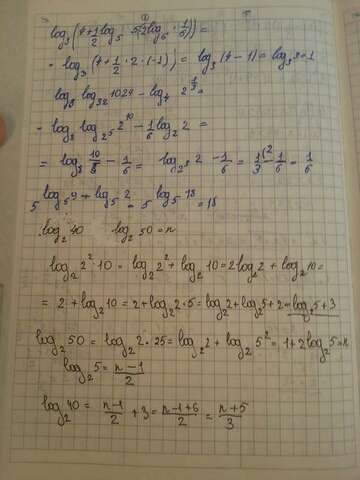 log₃(4+1/2 log₅ 5² · log₆ 1/6) =
= log₃(4+1/2 · 2 · (-1)) = log₃(4-1) = log₃3=1
log₈ log₃₂ 1024 - log₄ 2^(1/3) =
= log₈ log₂⁵ 2¹⁰ - 1/6 log₂ 2 =
= log₈ 10/5 - 1/6 = log₂³ 2 - 1/6 = 1/3 - 1/6 = 1/6
5^(log₅9 + log₅2) = 5^(log₅18) = 18
log₂40 log₂50 = n
log₂ 2²·10 = log₂2² + log₂10 = 2log₂2 + log₂10 =
= 2 + log₂10 = 2 + log₂2·5 = log₂2 + log₂5+2 = log₂5+3
log₂50 = log₂2·25 = log₂2 + log₂5² = 1+2log₂5=n
log₂5 = n-1/2
log₂40 = n-1/2 + 3 = n-1+6/2 = n+5/3